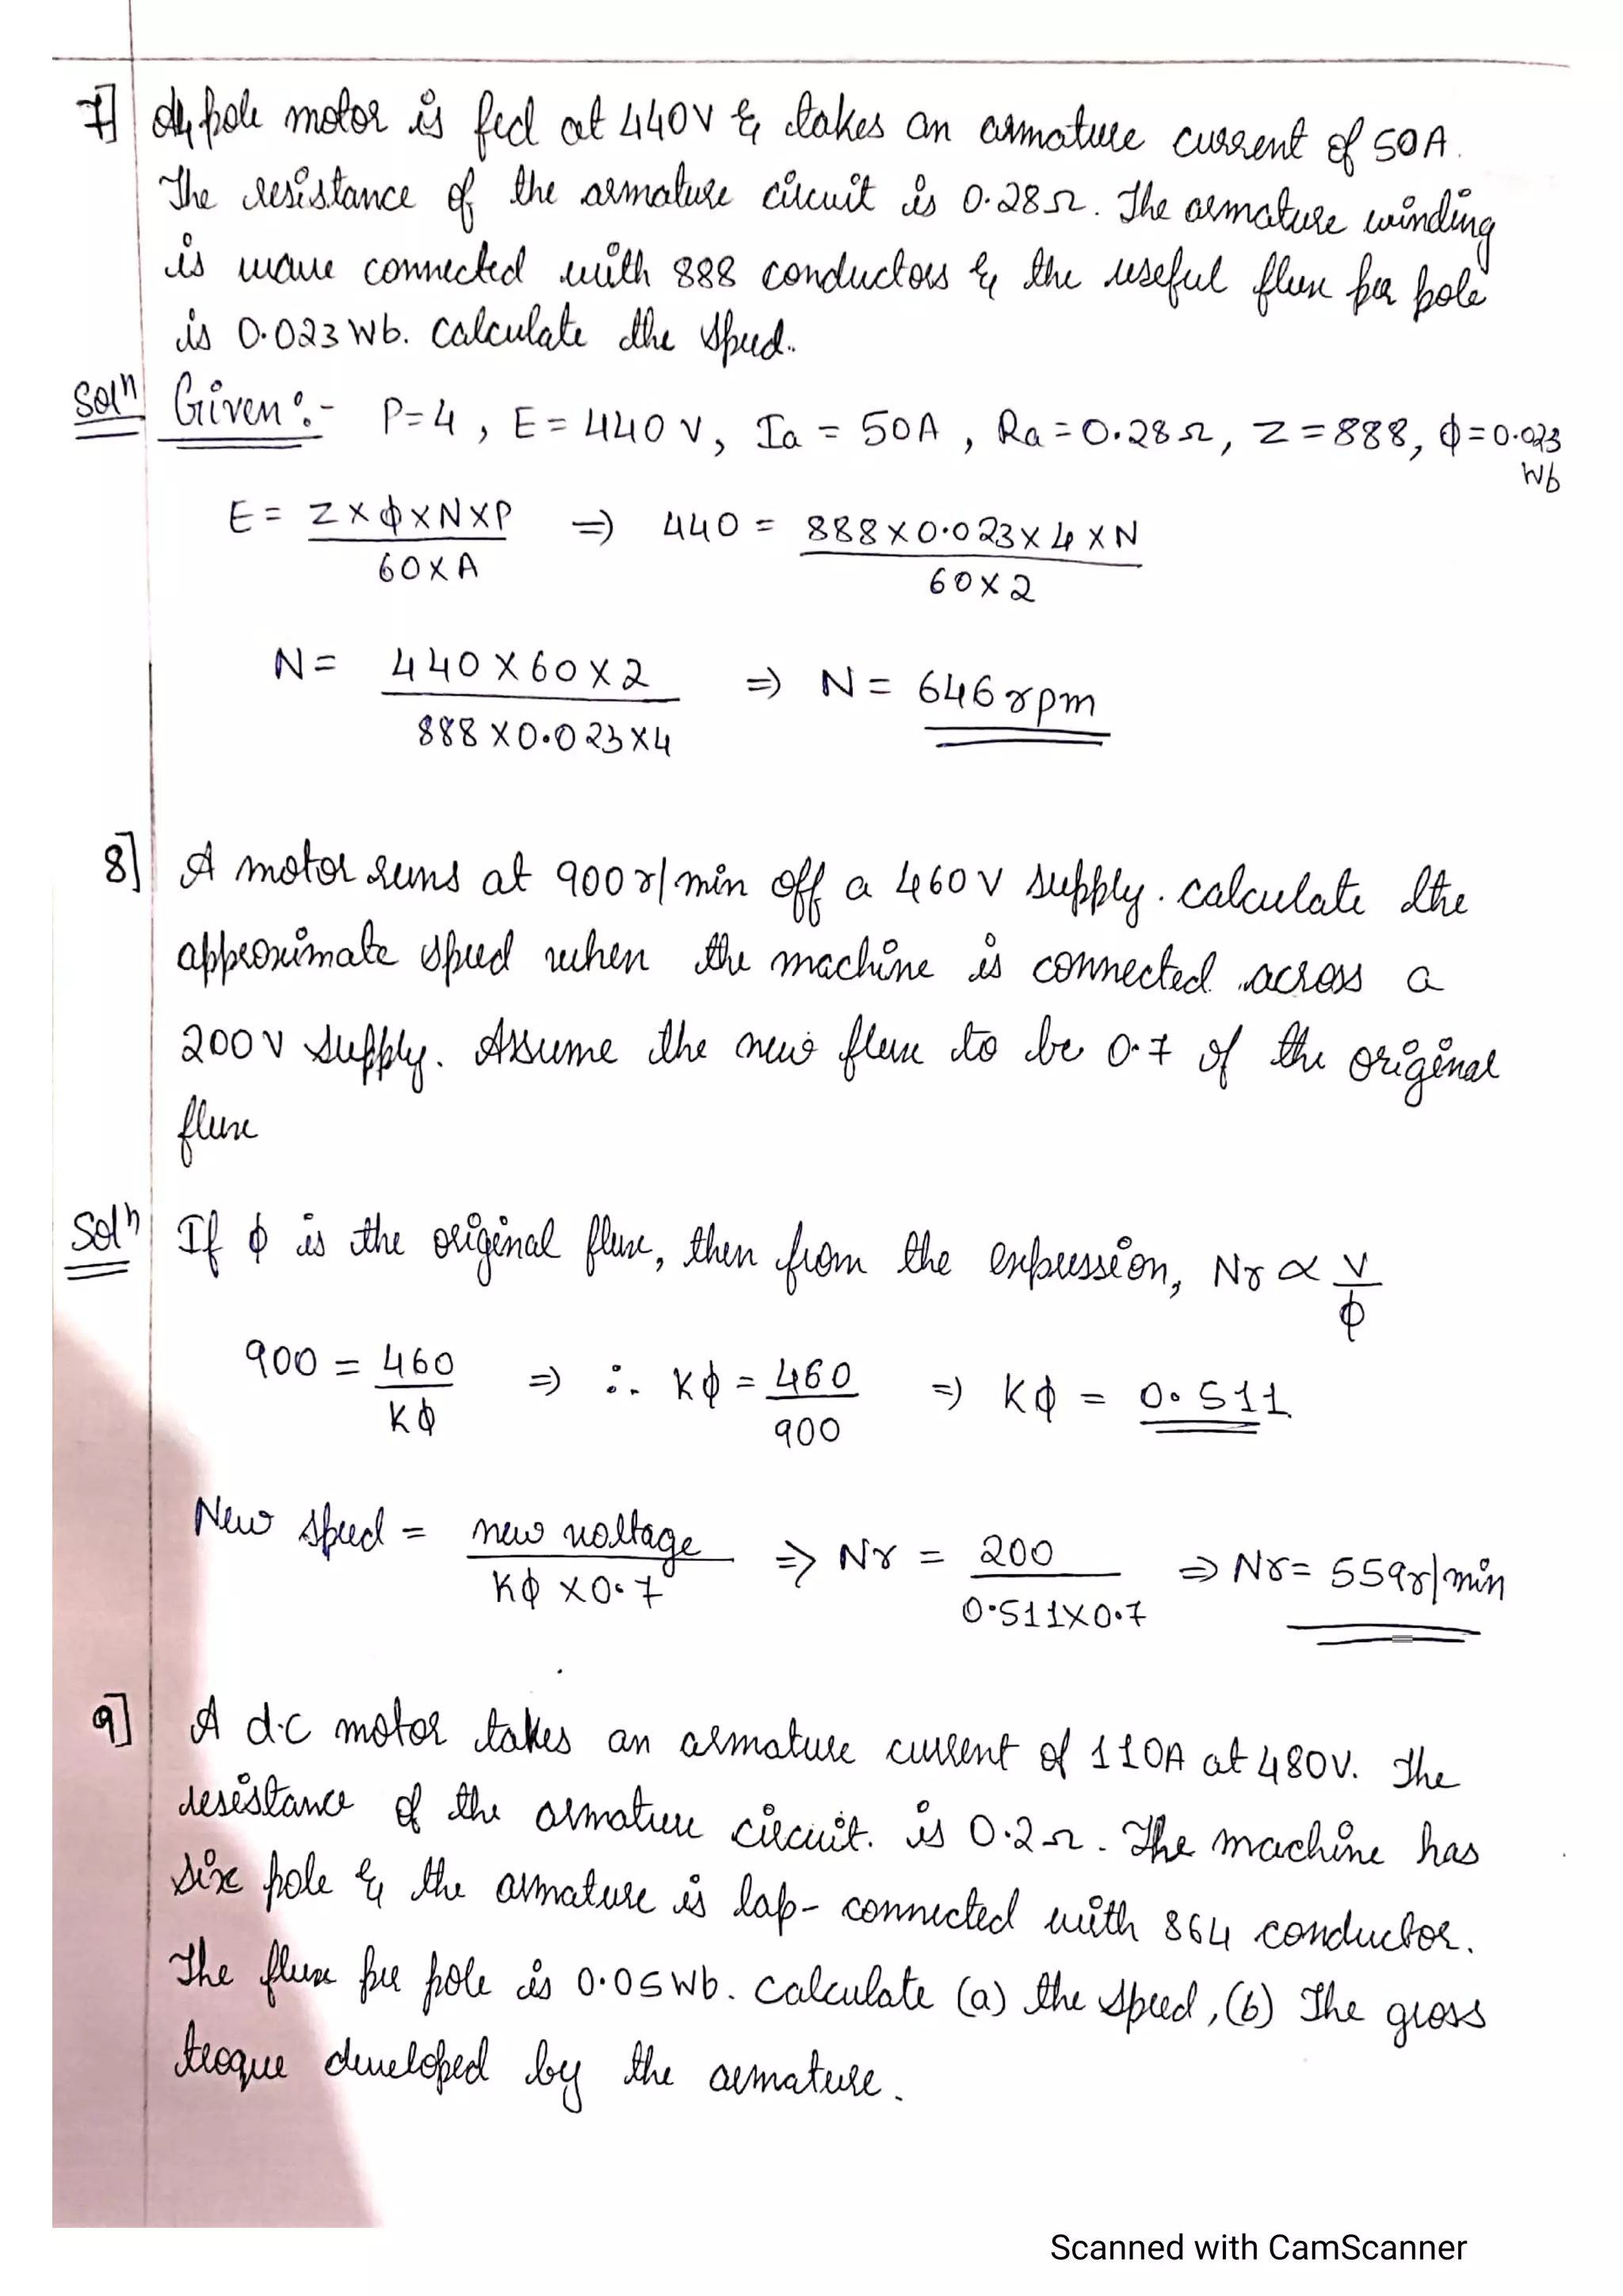 7] A 4 pole motor is fed at 440V & takes an armature current of 50A.
The resistance of the armature circuit is 0.28Ω. The armature winding
is wave connected with 888 conductors & the useful flux per pole
is 0.023 Wb. Calculate the speed.
Solⁿ Given:- P=4, E=440V, Ia = 50A, Ra=0.28Ω, Z=888, ϕ=0.023
Wb
E = Z×ϕ×N×P / 60×A ⇒ 440 = 888×0.023×4×N / 60×2
N = 440×60×2 / 888×0.023×4 ⇒ N = 646 rpm
8] A motor runs at 900 r/min off a 460 V supply. Calculate the
approximate speed when the machine is connected across a
200 V supply. Assume the new flux to be 0.7 of the original
flux
Solⁿ If ϕ is the original flux, then from the expression, Nr ∝ V/ϕ
900 = 460/Kϕ ⇒ ∴ Kϕ = 460/900 ⇒ Kϕ = 0.511
New speed = new voltage / Kϕ ×0.7 ⇒ Nr = 200 / 0.511×0.7 ⇒ Nr = 559r/min
9] A d.c motor takes an armature current of 110A at 480V. The
resistance of the armature circuit. is 0.2Ω. The machine has
six pole & the armature is lap-connected with 864 conductor.
The flux per pole is 0.05Wb. Calculate (a) the speed, (b) The gross
troque developed by the armature.
Scanned with CamScanner